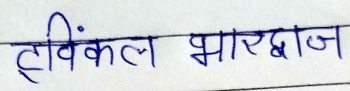 ट्विंकल भारद्वाज